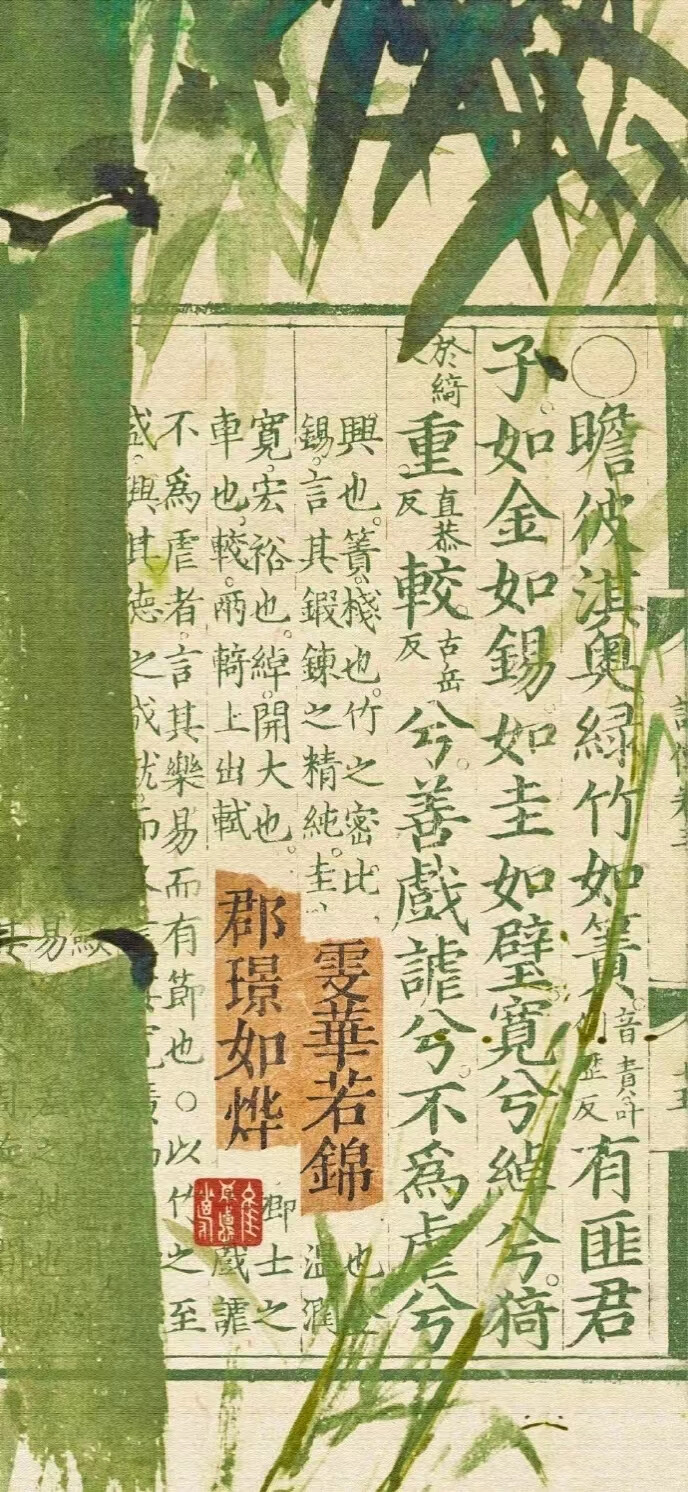 ○瞻彼淇奧綠竹如簀
音責叶
反
有匪君
子如金如錫如圭如璧寬兮綽兮猗
於綺
重
直恭
反
較
古岳
反
兮善戲謔兮不為虐兮
興也簀棧也竹之密比
也金
錫言其鍛鍊之精純圭
溫潤
寬宏裕也綽開大也
卿士之
車也較兩輢上出軾
戲謔
不為虐者言其樂易而有節也○以竹之至
盛興其德之成就而
雯華若錦
郡璟如烨
易